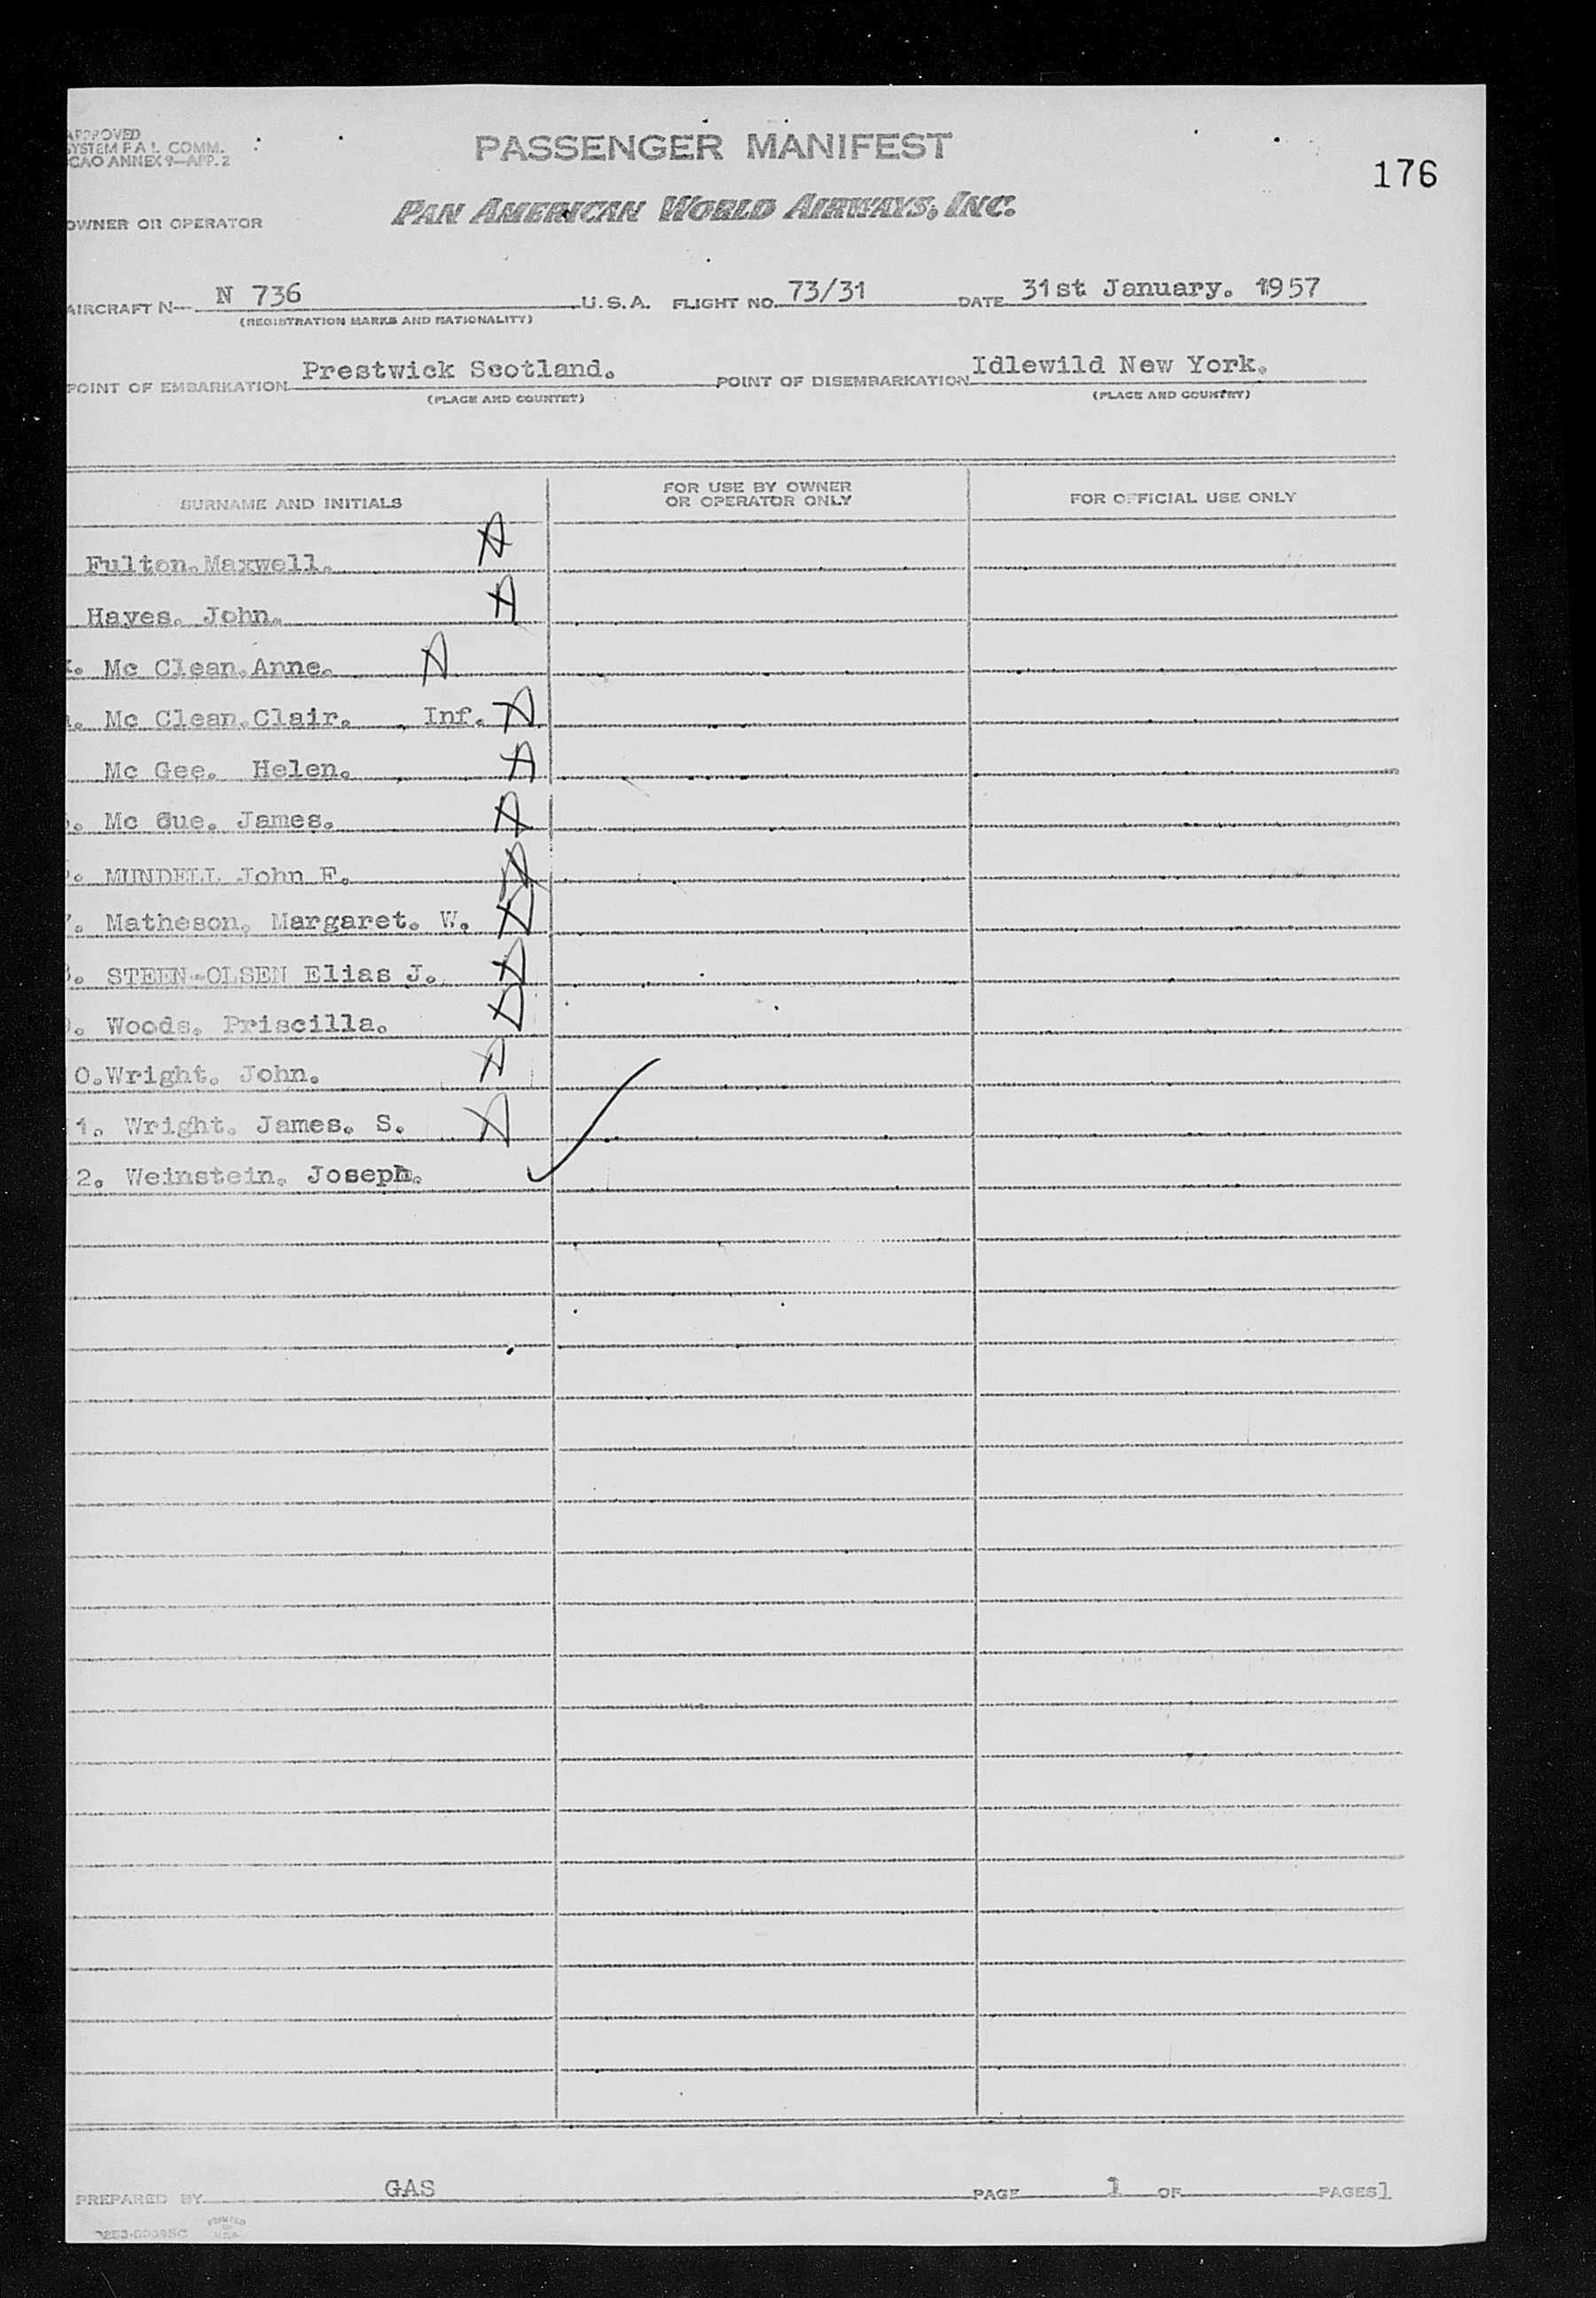 APPROVED
SYSTEM F.A.L. COMM.
ICAO ANNEX 9—APP. 2
PASSENGER MANIFEST
176
OWNER OR OPERATOR
PAN AMERICAN WORLD AIRWAYS, INC.
AIRCRAFT N— N 736 U.S.A. FLIGHT NO. 73/31 DATE 31st January. 1957
(REGISTRATION MARKS AND NATIONALITY)
POINT OF EMBARKATION Prestwick Scotland. POINT OF DISEMBARKATION Idlewild New York.
(PLACE AND COUNTRY) (PLACE AND COUNTRY)
SURNAME AND INITIALS FOR USE BY OWNER OR OPERATOR ONLY FOR OFFICIAL USE ONLY
Fulton. Maxwell. A
Hayes. John. A
. Mc Clean. Anne. A
. Mc Clean. Clair. Inf. A
Mc Gee. Helen. A
. Mc Gue. James. A
. MUNDELL John F. A
7. Matheson, Margaret. W. A
8. STEEN-OLSEN Elias J. A
9. Woods. Priscilla. A
0. Wright. John. A
1. Wright. James. S. A
2. Weinstein. Joseph. ✓
PREPARED BY GAS PAGE 1 OF PAGES 1
PRINTED
IN
U.S.A.